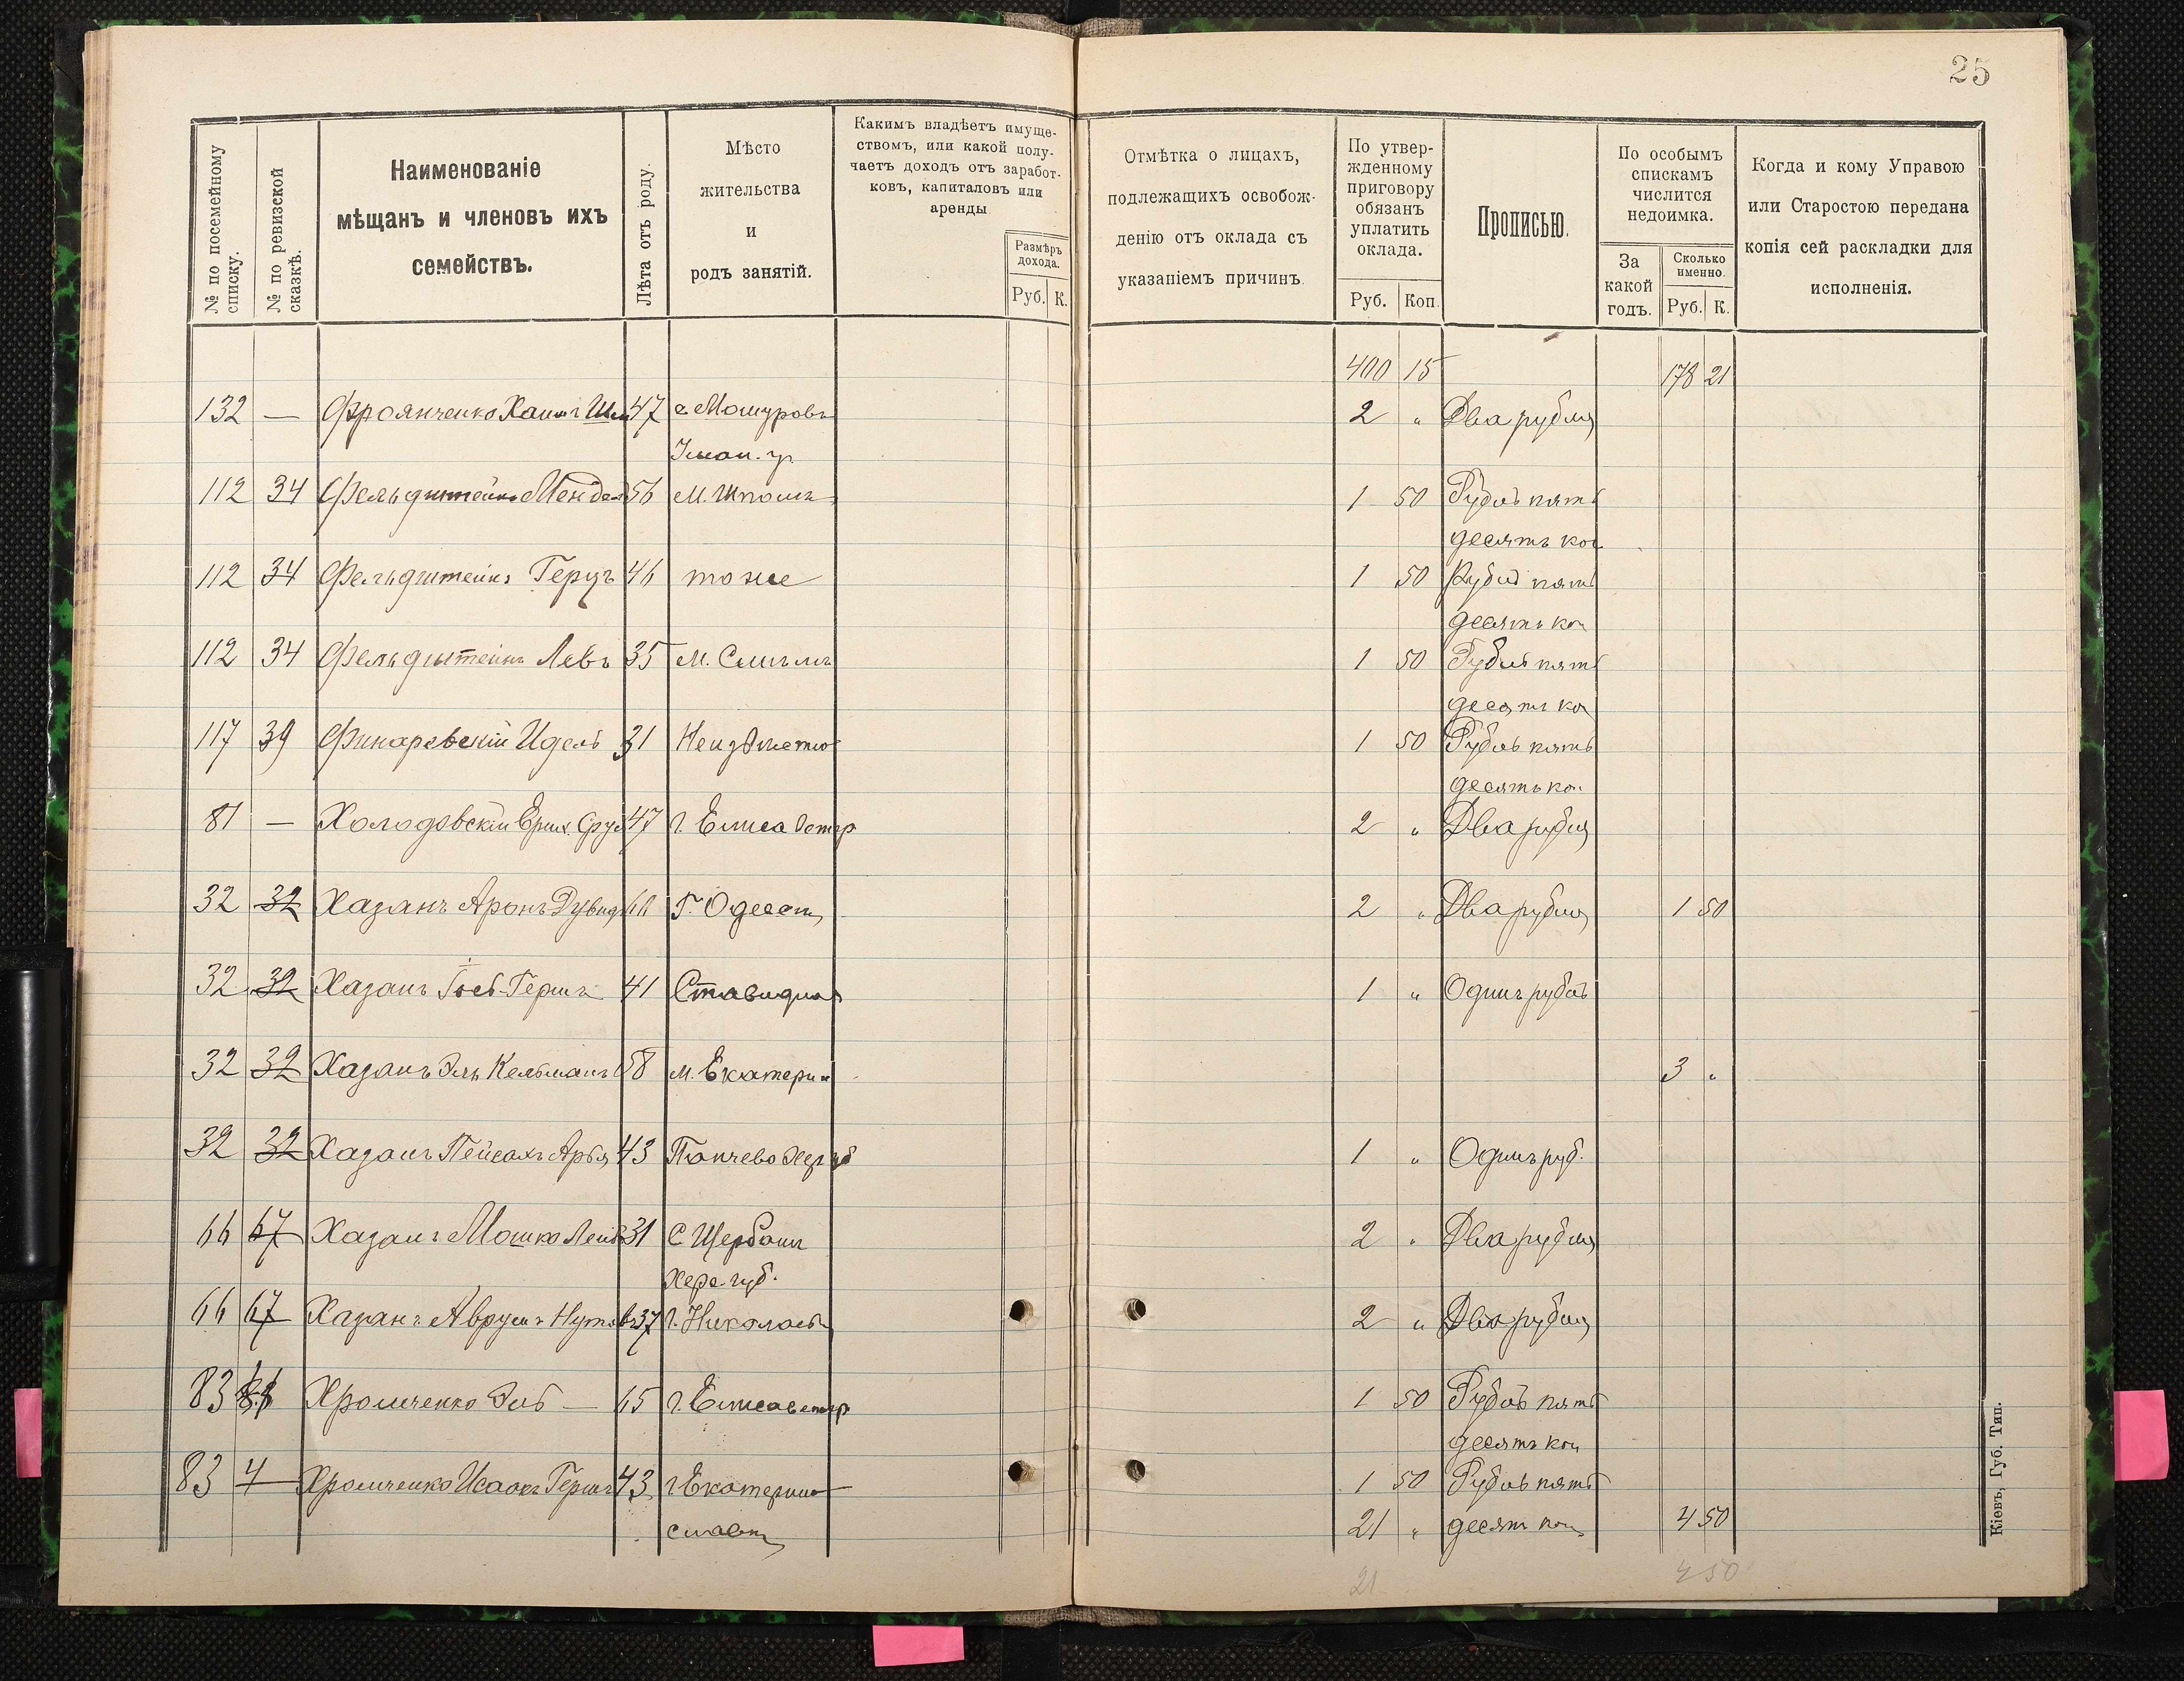 25
№ по посемейному списку.
№ по ревизской сказкѣ.
Наименованіе
мѣщанъ и членовъ ихъ
семействъ.
Лѣта отъ роду.
Мѣсто
жительства
и
родъ занятій.
Какимъ владѣетъ имуще-
ствомъ, или какой полу-
чаетъ доходъ отъ заработ-
ковъ, капиталовъ или
аренды
Размѣръ
дохода.
Руб. К.
Отмѣтка о лицахъ,
подлежащихъ освобож-
денію отъ оклада съ
указаніемъ причинъ.
По утвер-
жденному
приговору
обязанъ
уплатить
оклада.
Руб. Коп.
Прописью.
По особымъ
спискамъ
числится
недоимка.
За
какой
годъ.
Сколько
именно.
Руб. К.
Когда и кому Управою
или Старостою передана
копія сей раскладки для
исполненія.
400 15 178 21
132 — Фроянченко Хаим 47 с. Мошуровъ 2 " Два рубля
Уман. у.
112 34 Фельдштейнъ Мендел 56 м. Шпола 1 50 Рубль пять
десять коп
112 34 Фельдштейнъ Герцъ 46 тоже 1 50 Рубль пять
десять коп
112 34 Фельдштейнъ Левъ 35 м. 1 50 Рубль пять
десять коп
117 39 Финаревскій Идель 31 Неизвѣстно 1 50 Рубль пять
десять коп.
81 — Холодовскій Срул 47 г. Елисаветгр 2 " Два рубля
32 32 Хазанъ Аронъ Дувид г. Одесса 2 " Два рубля 1 50
32 32 Хазанъ Іосъ-Гершъ 41 1 " Одинъ рубль
32 32 Хазанъ Эль Кельманъ 58 м. Екатерин 3 "
32 32 Хазанъ Пейсахъ Арья 43 Панчево Хер губ 1 " Одинъ руб.
66 67 Хазанъ Мошко Лейб 31 С Щербани 2 " Два рубля
Херс. губ.
66 67 Хазанъ Аврумъ 37 г. Николаевъ 2 " Два рубля
83 Хромченко Эль — 65 г. Елисаветгр 1 50 Рубль пять
десять коп
83 4 Хромченко Исаакъ Гершъ 43 г. Екатерино 1 50 Рубль пять
славъ 21 " десять коп 4 50
21 4 50
Кіевъ, Губ. Тип.